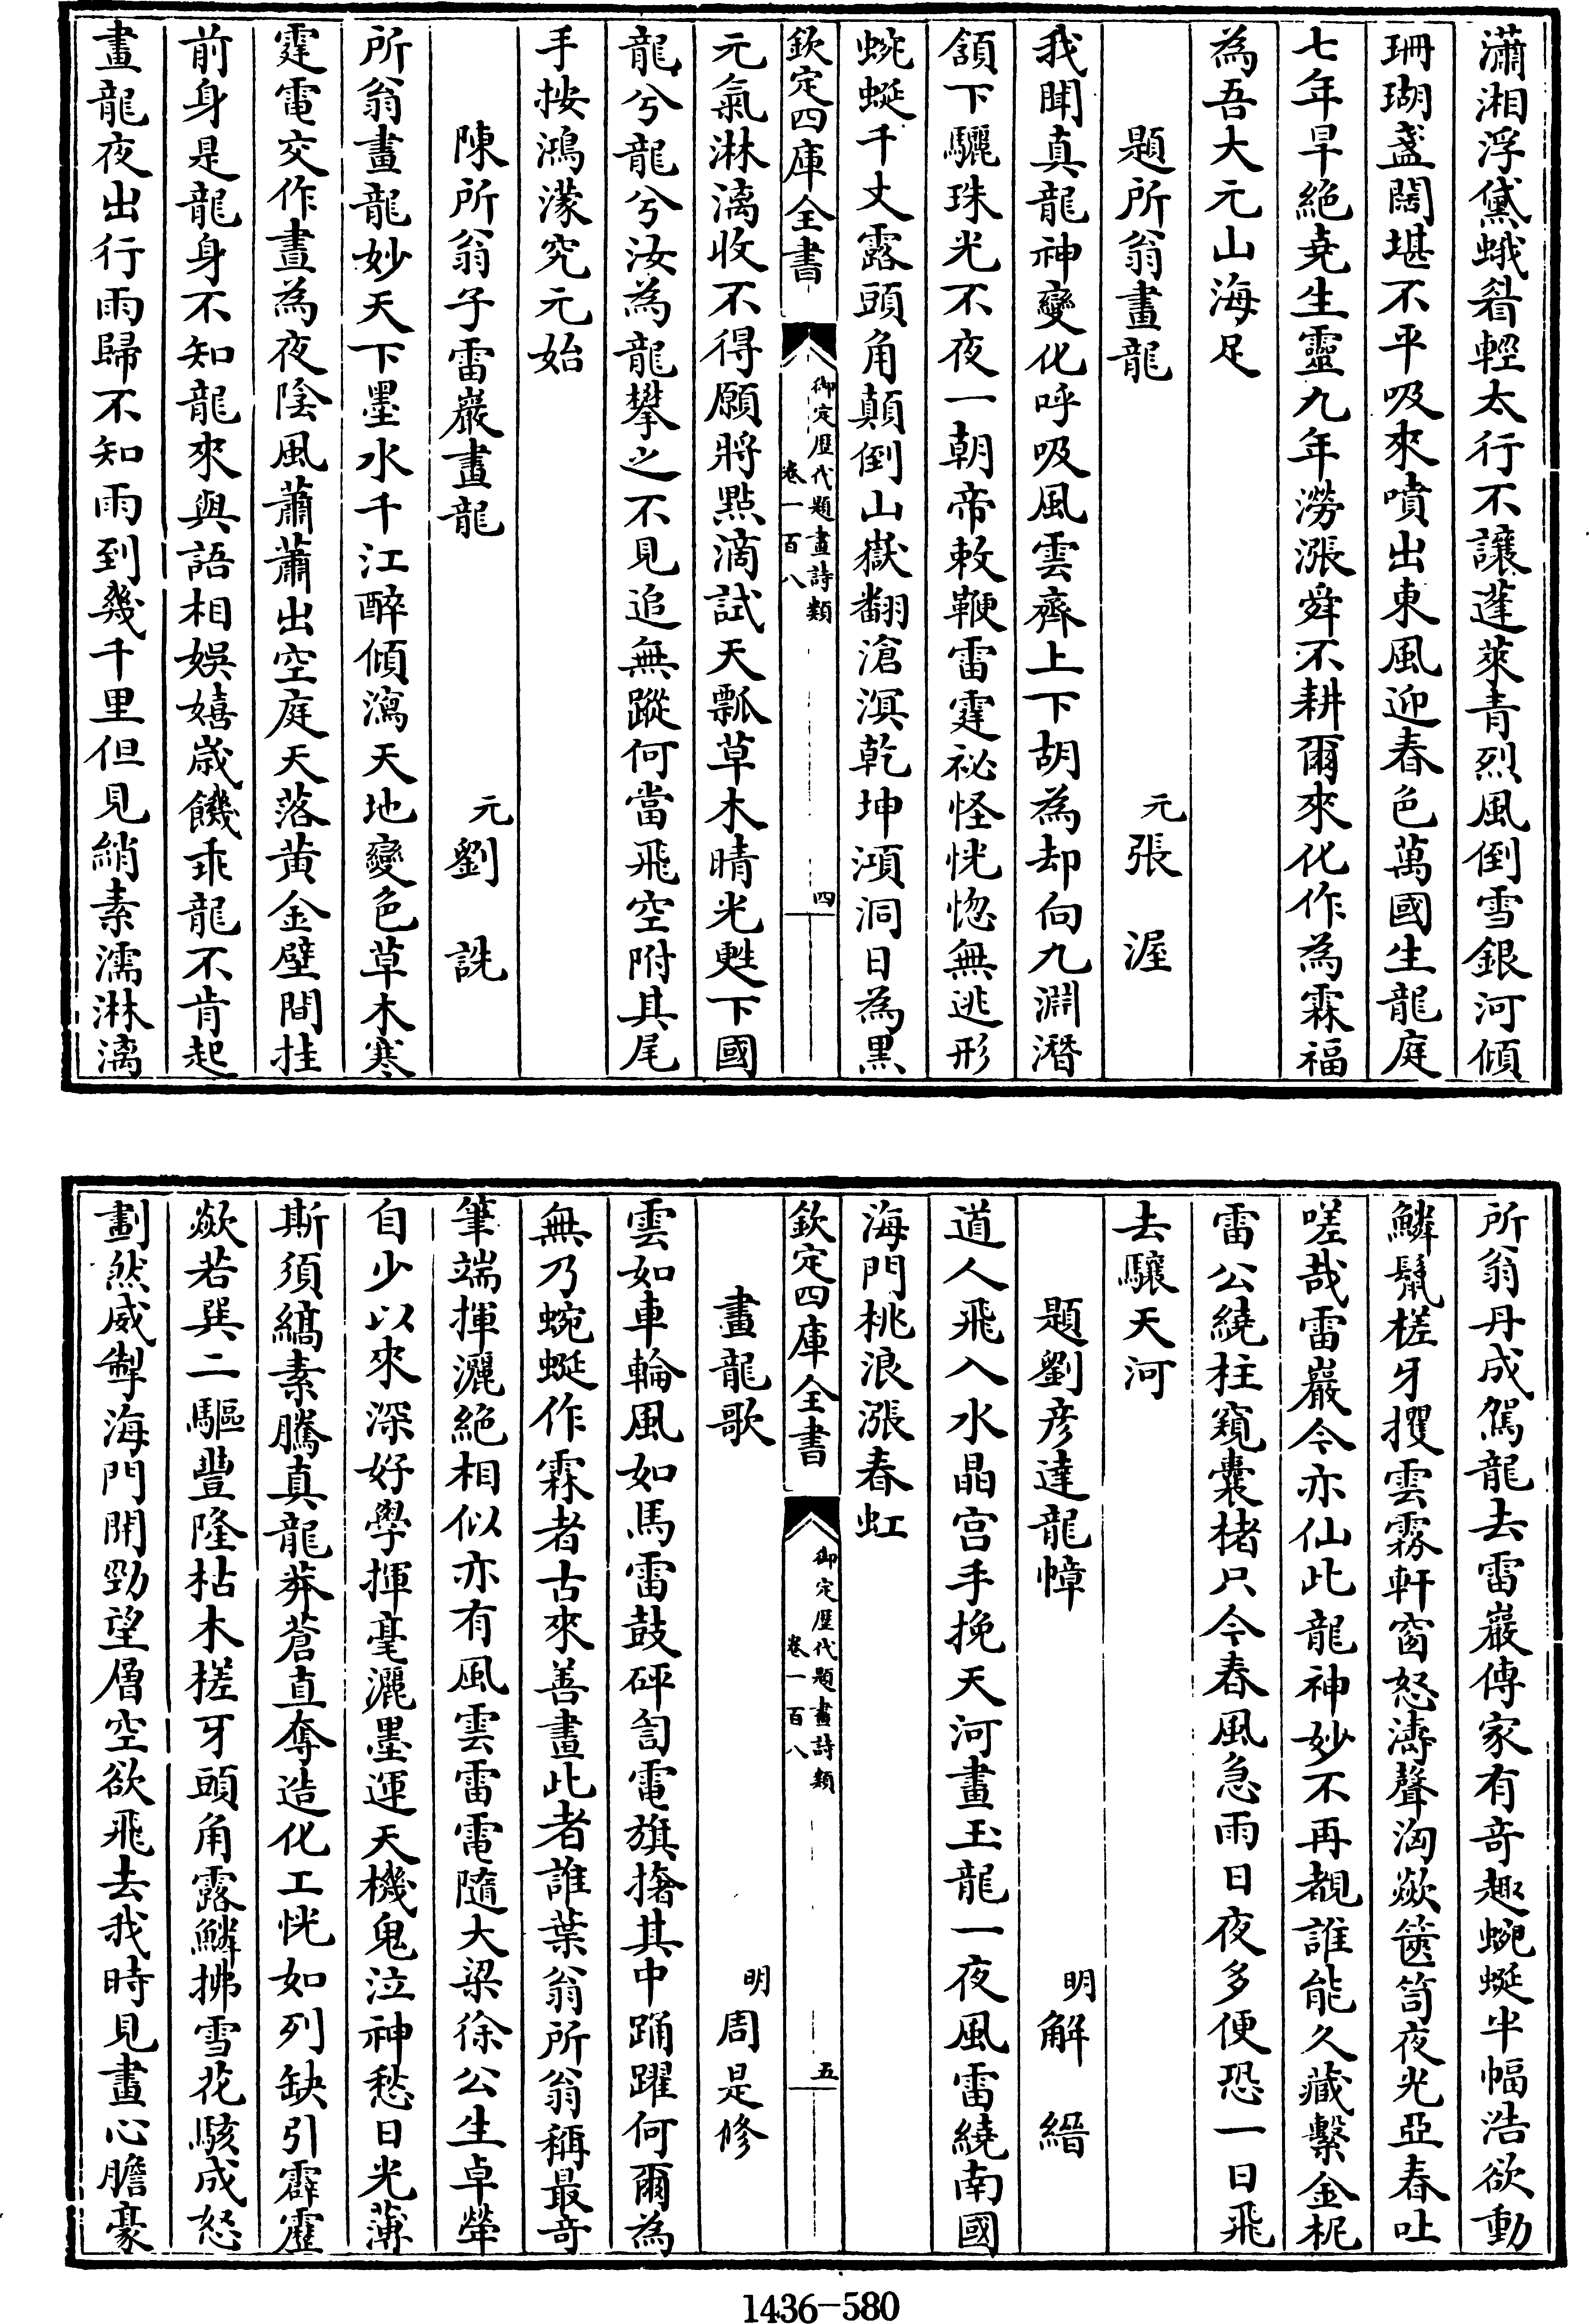 瀟湘浮黛蛾眉輕太行不讓蓬萊青烈風倒雪銀河傾
珊瑚盞闊堪不平吸來噴出東風迎春色萬國生龍庭
七年旱絶堯生靈九年澇漲舜不耕爾來化作為霖福
為吾大元山海足
題所翁畫龍
元張渥
我聞真龍神變化呼吸風雲齊上下胡為却向九淵潛
頷下驪珠光不夜一朝帝敕鞭雷霆祕怪恍惚無逃形
蜿蜒千丈露頭角顛倒山嶽翻滄溟乾坤澒洞日為黒
欽定四庫全書
御定歴代題畫詩類
卷一百八
四
元氣淋漓收不得願將點滴試天瓢草木晴光甦下國
龍兮龍兮汝為龍攀之不見追無蹤何當飛空附其尾
手按鴻濛究元始
陳所翁子雷巖畫龍
元劉詵
所翁畫龍妙天下墨水千江醉傾瀉天地變色草木寒
霆電交作晝為夜陰風蕭蕭出空庭天落黄金壁間挂
前身是龍身不知龍來與語相娛嬉歳饑乖龍不肯起
畫龍夜出行雨歸不知雨到幾千里但見綃素濡淋漓
所翁丹成駕龍去雷巖傳家有奇趣蜿蜒半幅浩欲動
鱗鬛槎牙攫雲霧軒窗怒濤聲洶歘篋笥夜光亞春吐
嗟哉雷巖今亦仙此龍神妙不再覩誰能久藏繫金柅
雷公繞柱窺囊楮只今春風急雨日夜多便恐一日飛
去驤天河
題劉彦達龍幛
明解縉
道人飛入水晶宫手挽天河畫玉龍一夜風雷繞南國
海門桃浪漲春虹
欽定四庫全書
御定歴代題畫詩類
卷一百八
五
畫龍歌
明周是修
雲如車輪風如馬雷鼓砰訇電旗撦其中踊躍何爾為
無乃蜿蜒作霖者古來善畫此者誰葉翁所翁稱最奇
筆端揮灑絶相似亦有風雲雷電隨大梁徐公生卓犖
自少以來深好學揮毫灑墨運天機鬼泣神愁日光薄
斯須縞素騰真龍莽蒼直奪造化工恍如列缺引霹靂
歘若巽二驅豐隆枯木槎牙頭角露鱗拂雪花駭成怒
劃然威掣海門開勁望層空欲飛去我時見畫心膽豪
1436-580